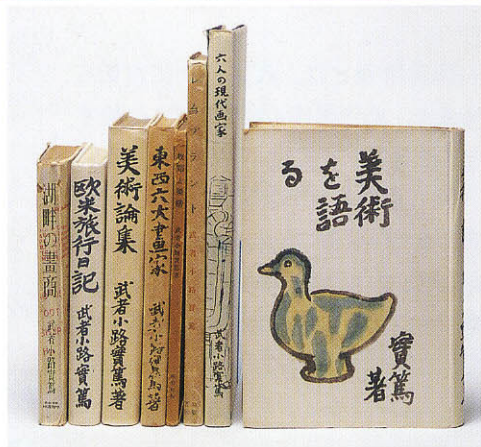 湖畔の畫商
武者小路實篤
欧米旅行日記
武者小路實篤
美術論集
武者小路實篤著
東西六大画家
武者小路實篤著
レムブラント
武者小路實篤
六人の現代画家
武者小路實篤
美術
を語
る
實篤
著